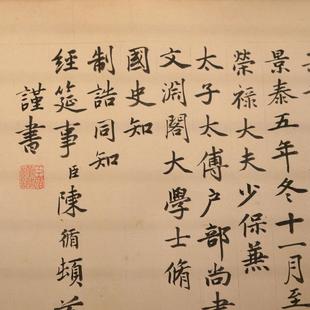 景泰五年冬十一月至
榮禄大夫少保兼
太子太傅户部尚書
文淵閣大學士脩
國史知
制誥同知
經筵事臣陳循頓首
謹書